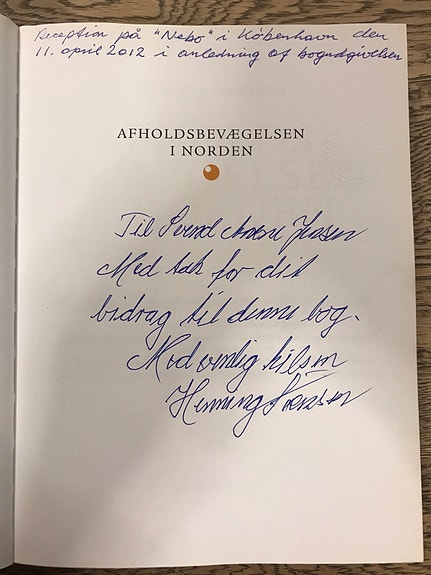 Reception på "Nebo" i København den
11. april 2012 i anledning af bogudgivelsen
AFHOLDSBEVÆGELSEN
I NORDEN
Til Svend André Jensen
Med tak for dit
bidrag til denne bog.
Med venlig hilsen
Henning